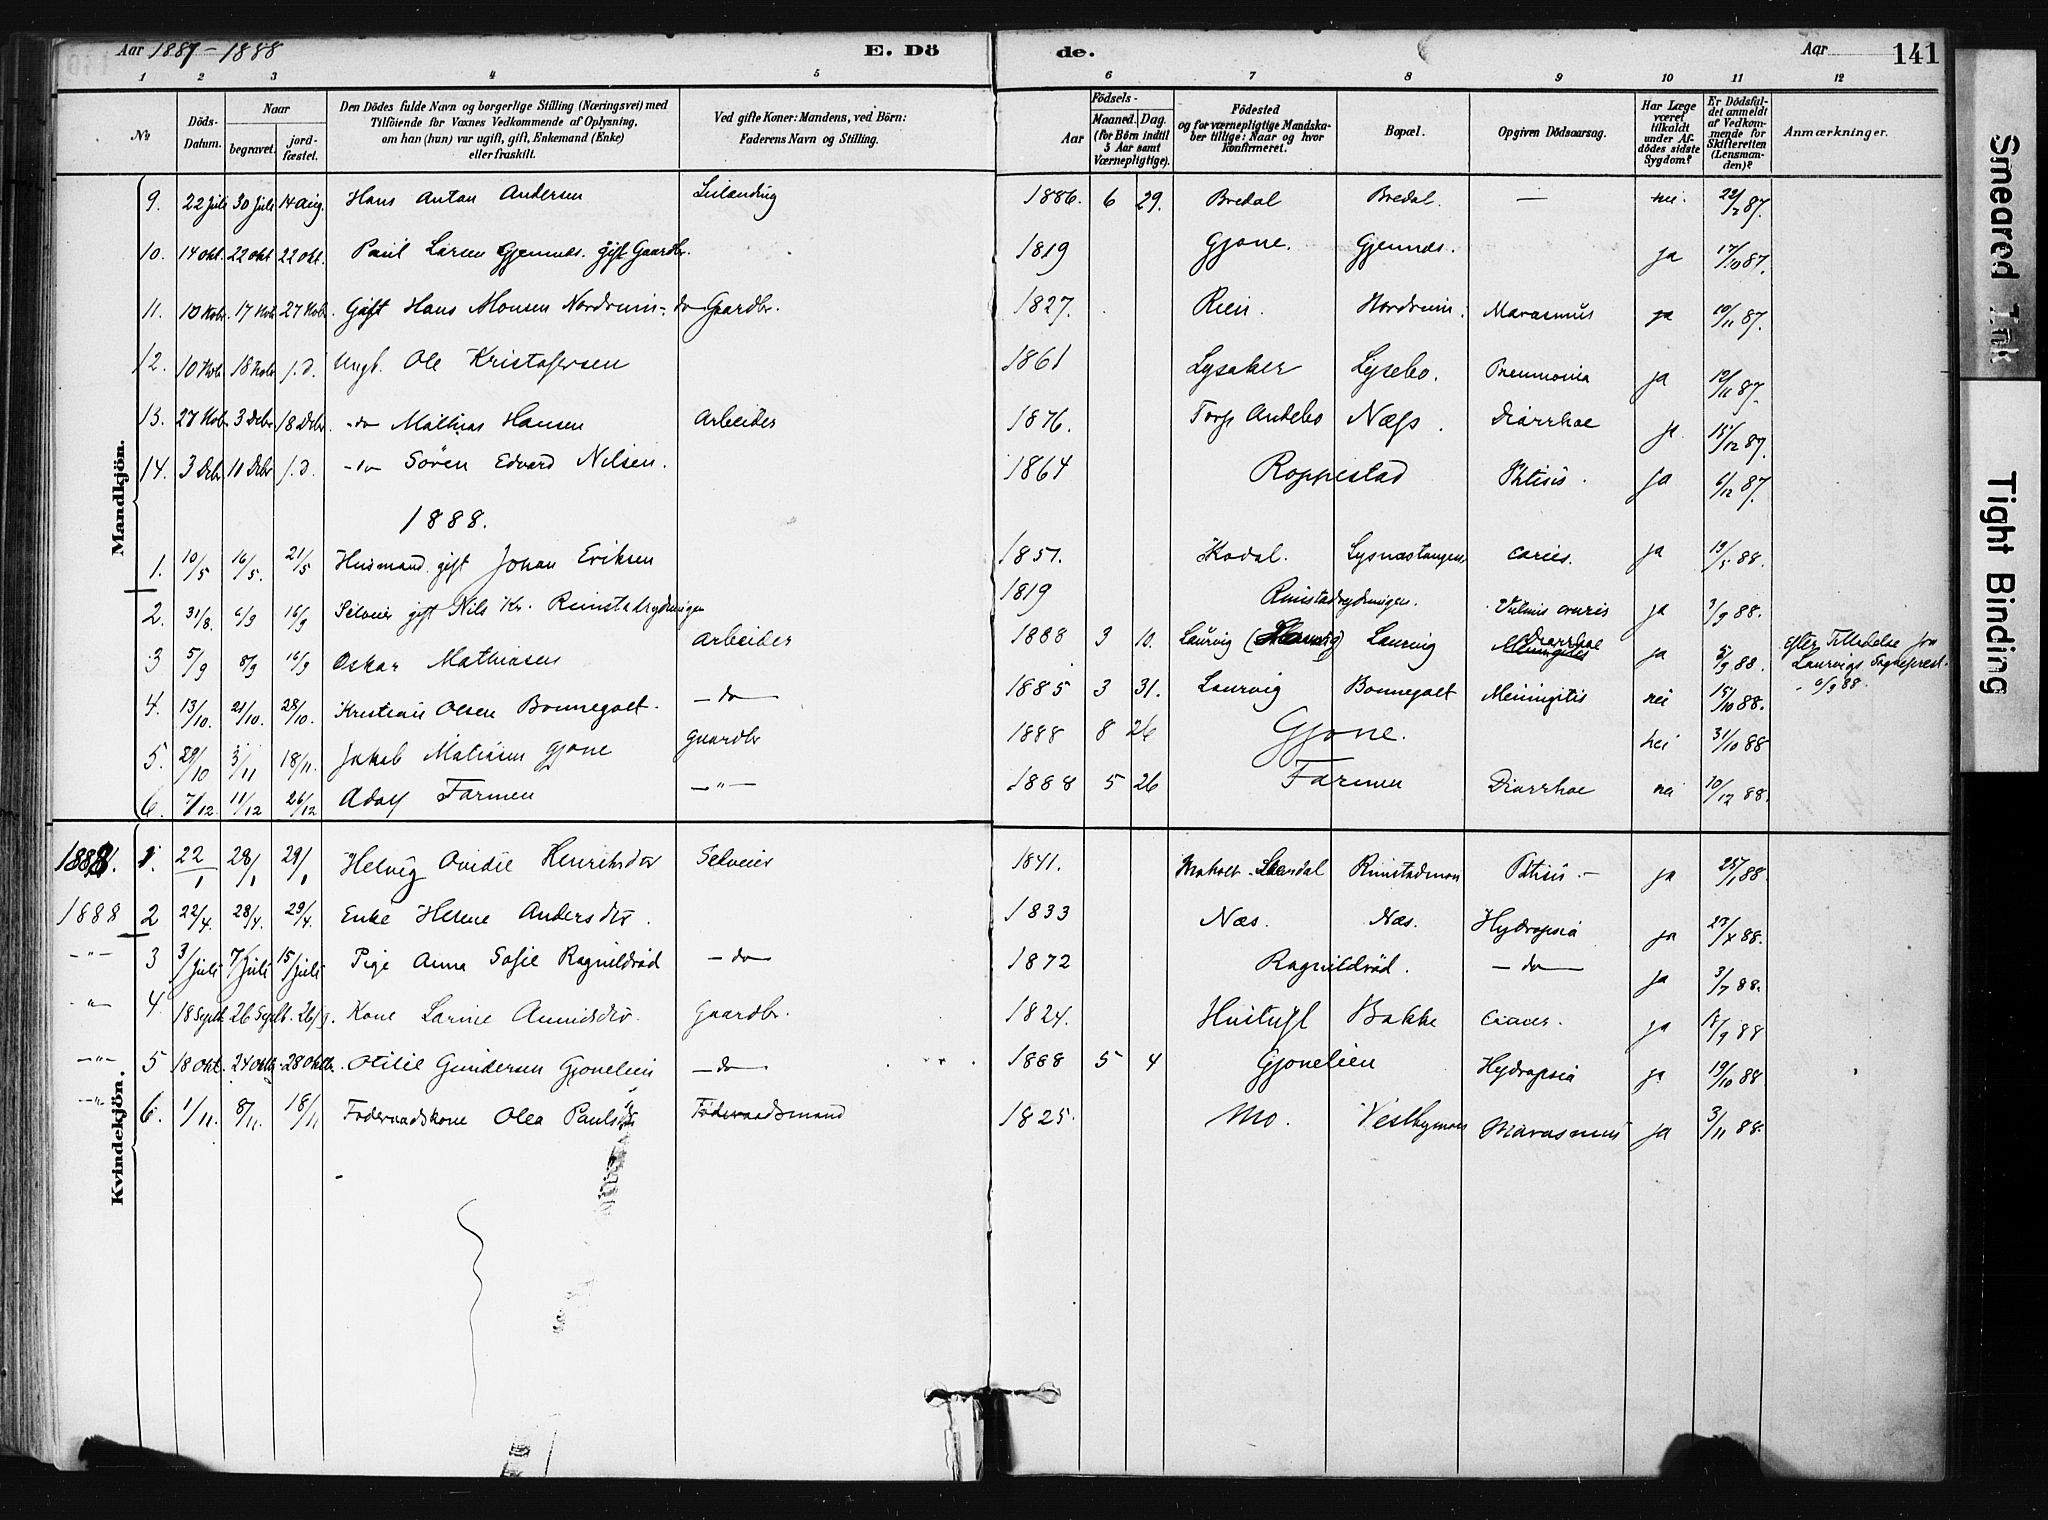 Aar 1887-1888 E. Dö de. Aar 141
1 2 3 4 5 6 7 8 9 10 11 12
No
Döds-Datum.
Naar
begravet.
jord-fæstet.
Den Dödes fulde Navn og borgerlige Stilling (Næringsvei) med
Tilföiende för Voxnes Vedkommende af Oplysning,
om han (hun) var ugift, gift, Enkemand (Enke)
eller fraskilt.
Ved gifte Koner: Mandens, ved Börn:
Faderens Navn og Stilling.
Födsels-
Aar
Maaned. Dag.
(for Börn indtil
5 Aar samt
Værnepligtige).
Födested
og for værnepligtige Mandska-
ber tillige: Naar og hvor
konfirmeret.
Bopæl.
Opgiven Dödsaarsag.
Har Læge
været
tilkaldt
under Af-
dödes sidste
Sygdom?
Er Dödsfal-
det anmeldt
af Vedkom-
mende for
Skifteretten
(Lensman-
den)?
Anmærkninger.
Mandkjön.
9. 22 Juli 30 Juli 14 Aug. Hans Anton Andersen Leilending 1886. 6 29. Bredal Bredal. — nei. 22/7 87.
10. 14 Okt. 22 Okt 22 Okt. Paul Larsen Gjennes. gift Gaardbr. 1819 Gjone. Gjennes. ja 17/10 87.
11. 10 Nobr 17 Nobr 27 Nobr. Gift Hans Monsen Nordrum - do Gaardbr. 1827. Rien. Nordrum. Marasmus ja 10/11 87.
12. 10 Nobr 18 Nobr s.d. Ungk. Ole Kristofersen 1861 Lysaker Lysebo. Pneumonia ja 12/11 87.
13. 27 Nobr 3 Debr 18 Debr - do Mathias Hansen Arbeider 1876. Torp Andebo Næss. Diarrhoe ja. 15/12 87.
14. 3 Debr 11 Debr s.d. - do Sören Edvard Nilsen. 1864 Roppestad Phtisis. ja 6/12 87.
1888.
1. 10/5 16/5. 21/5 Husmand gift Johan Eriksen 1851. Kodal. Lysnæstangen caries. ja 13/5 88.
2. 31/8. 6/9 16/9 Selveier gift Nils Kr. Rimstadrydningen 1819 Rimstadrydningen. cruris ja 3/9 88.
3 5/9 8/9 16/9 Oskar Mathiasen Arbeider 1888 3 10. Laurvig Laurvig Diarrhoe ja 5/9 88. Efter Tilladelse fra
Laurvigs Sogneprest.
- 6/9 88.
4. 13/10. 21/10. 28/10. Kristian Olsen Bonnegolt. - do - 1885 3 31. Laurvig Bonnegolt Meningitis nei 15/10 88.
5. 29/10 3/11 18/11. Jakob Matiasen Gjone Gaardbr 1888 8 26 Gjone. nei 31/10 88
6. 7/12. 11/12 26/12 Adolf Farmen - " - 1888 5 26 Farmen Diarrhoe nei 10/12 88.
Kvindekjön.
1888. 1. 22/1 28/1 29/1 Helvig Ovidie Henriksdtr Selveier 1841. Moholt Slemdal Rimstadmoen Phtisis. - ja 25/1 88.
1888 2 22/4. 28/4. 29/4. Enke Helene Andersdtr. 1833 Næs. Næs. Hydropsia ja 23/4 88.
- " - 3 3/Juli 7/Juli 15/Juli Pige Anna Sofie Ragnildröd - do - 1872 Ragnildröd. - do - ja 3/7 88.
- " - 4. 18 Septb. 26 Septb. 26/9. Kone Larine Amundsdtr. Gaardbr. 1824. Hvitufl Bakke Cancer. ja 18/9 88
- " - 5 18 Okt. 24 Oktb. 28 Oktbr. Otilie Gundersen Gjonelien - do - 1888 5 4 Gjonelien Hydropsia ja 19/10 88
- " - 6. 1/11. 8/11. 18/11 Föderaadskone Olea Paulsdtr Föderaadsmand 1825. Mo. Vestbymoen Marasmus ja 3/11 88.
Smeared Ink
Tight Binding